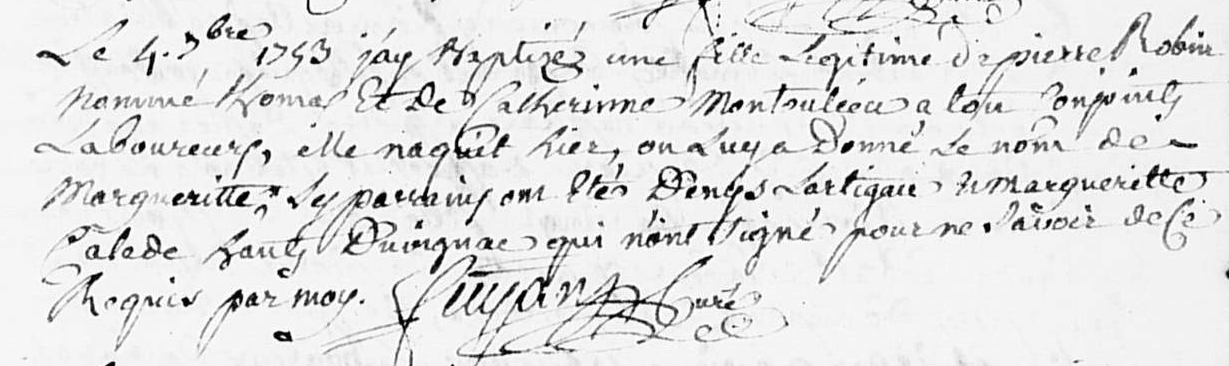 Le 4. 7bre 1753 j'ay Baptizé une fille Legitime de pierre Robin
nommé Thomas Et de Catherinne Montouleou a lou Conjoints
Laboureurs, elle naquit hier, on Luy a Donné Le nom de
Margueritte, Les parrains ont Etés Denys Lartigau et Margueritte
Duvignac qui n'ont signé pour ne savoir de Ce
Requis par moy. Curé